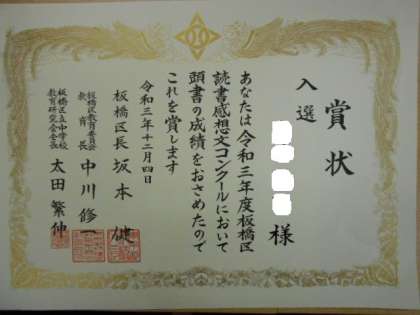 賞状
入選
様
あなたは令和三年度板橋区
読書感想文コンクールにおいて
頭書の成績をおさめたので
これを賞します
令和三年十二月四日
板橋区長 坂本 健
板橋区教育委員会
教育長 中川修一
板橋区立中学校
教育研究会会長 太田繁伸